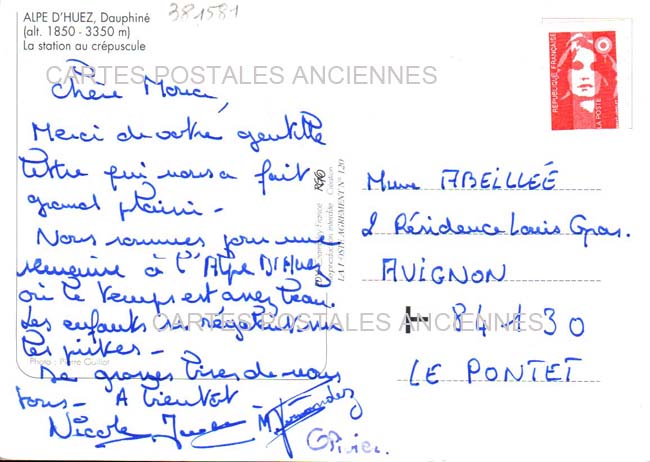 ALPE D'HUEZ, Dauphiné
(alt. 1850 - 3350 m)
La station au crépuscule
381581
CARTES POSTALES ANCIENNES
Chère
Merci de votre gentille
lettre qui nous a fait
grand plaisir -
Nous sommes pour une
semaine à l'Alpe D'Huez
où le temps est assez beau.
Les enfants se régalent sur
les pistes -
De grosses bises de nous
tous - A bientôt -
Nicole
Photo : Pierre Guillot
REPUBLIQUE FRANÇAISE
LA POSTE
Mme ABEILLEÉ
2 Résidence Louis Gros.
AVIGNON
84130
LE PONTET
CARTES POSTALES ANCIENNES
Reproduction interdite
LA POSTE AGREMENT N° 120